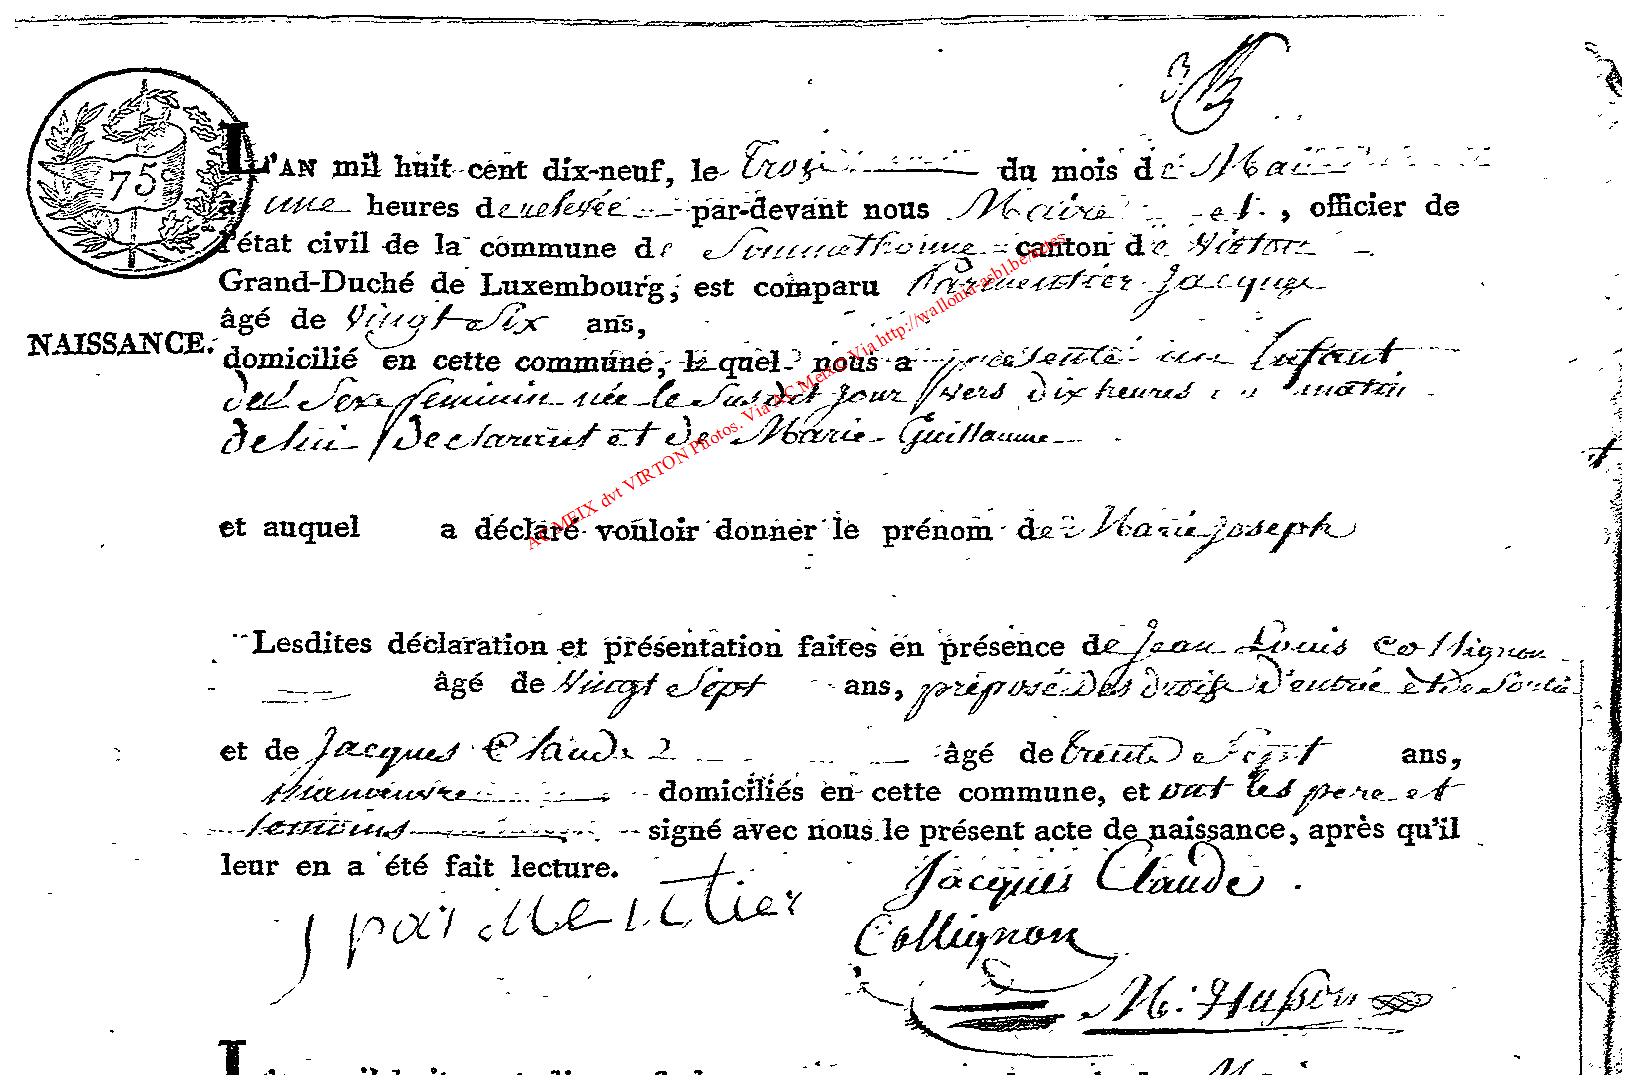 3
75c
L'AN mil huit cent dix-neuf, le Trois du mois de Mai
à une heures de relevée par-devant nous Maire et, officier de
l'état civil de la commune de Sommethonne canton de Virton
Grand-Duché de Luxembourg, est comparu Parmentier Jacque
âgé de Vingt Six ans,
NAISSANCE.
domicilié en cette commune, lequel nous a présenté un Enfant
du Sexe feminin née le Susdit jour vers dix heures matin
de lui Declarant et de Marie Guillaume
et auquel a déclaré vouloir donner le prénom de Marie joseph
Lesdites déclaration et présentation faites en présence de Jean Louis Collignon
âgé de Vingt Sept ans, préposé Des droits D'entrée et de Sortie
et de Jacques Claude âgé de trente Sept ans,
Manoeuvre domiciliés en cette commune, et ont les pere et
temoins signé avec nous le présent acte de naissance, après qu'il
leur en a été fait lecture.
j parmentier
Jacques Claude
Collignon
M. Husson
AC MEIX dvt VIRTON Photos. Via AC Meix. Via http://wallonia-asbl.be/actes